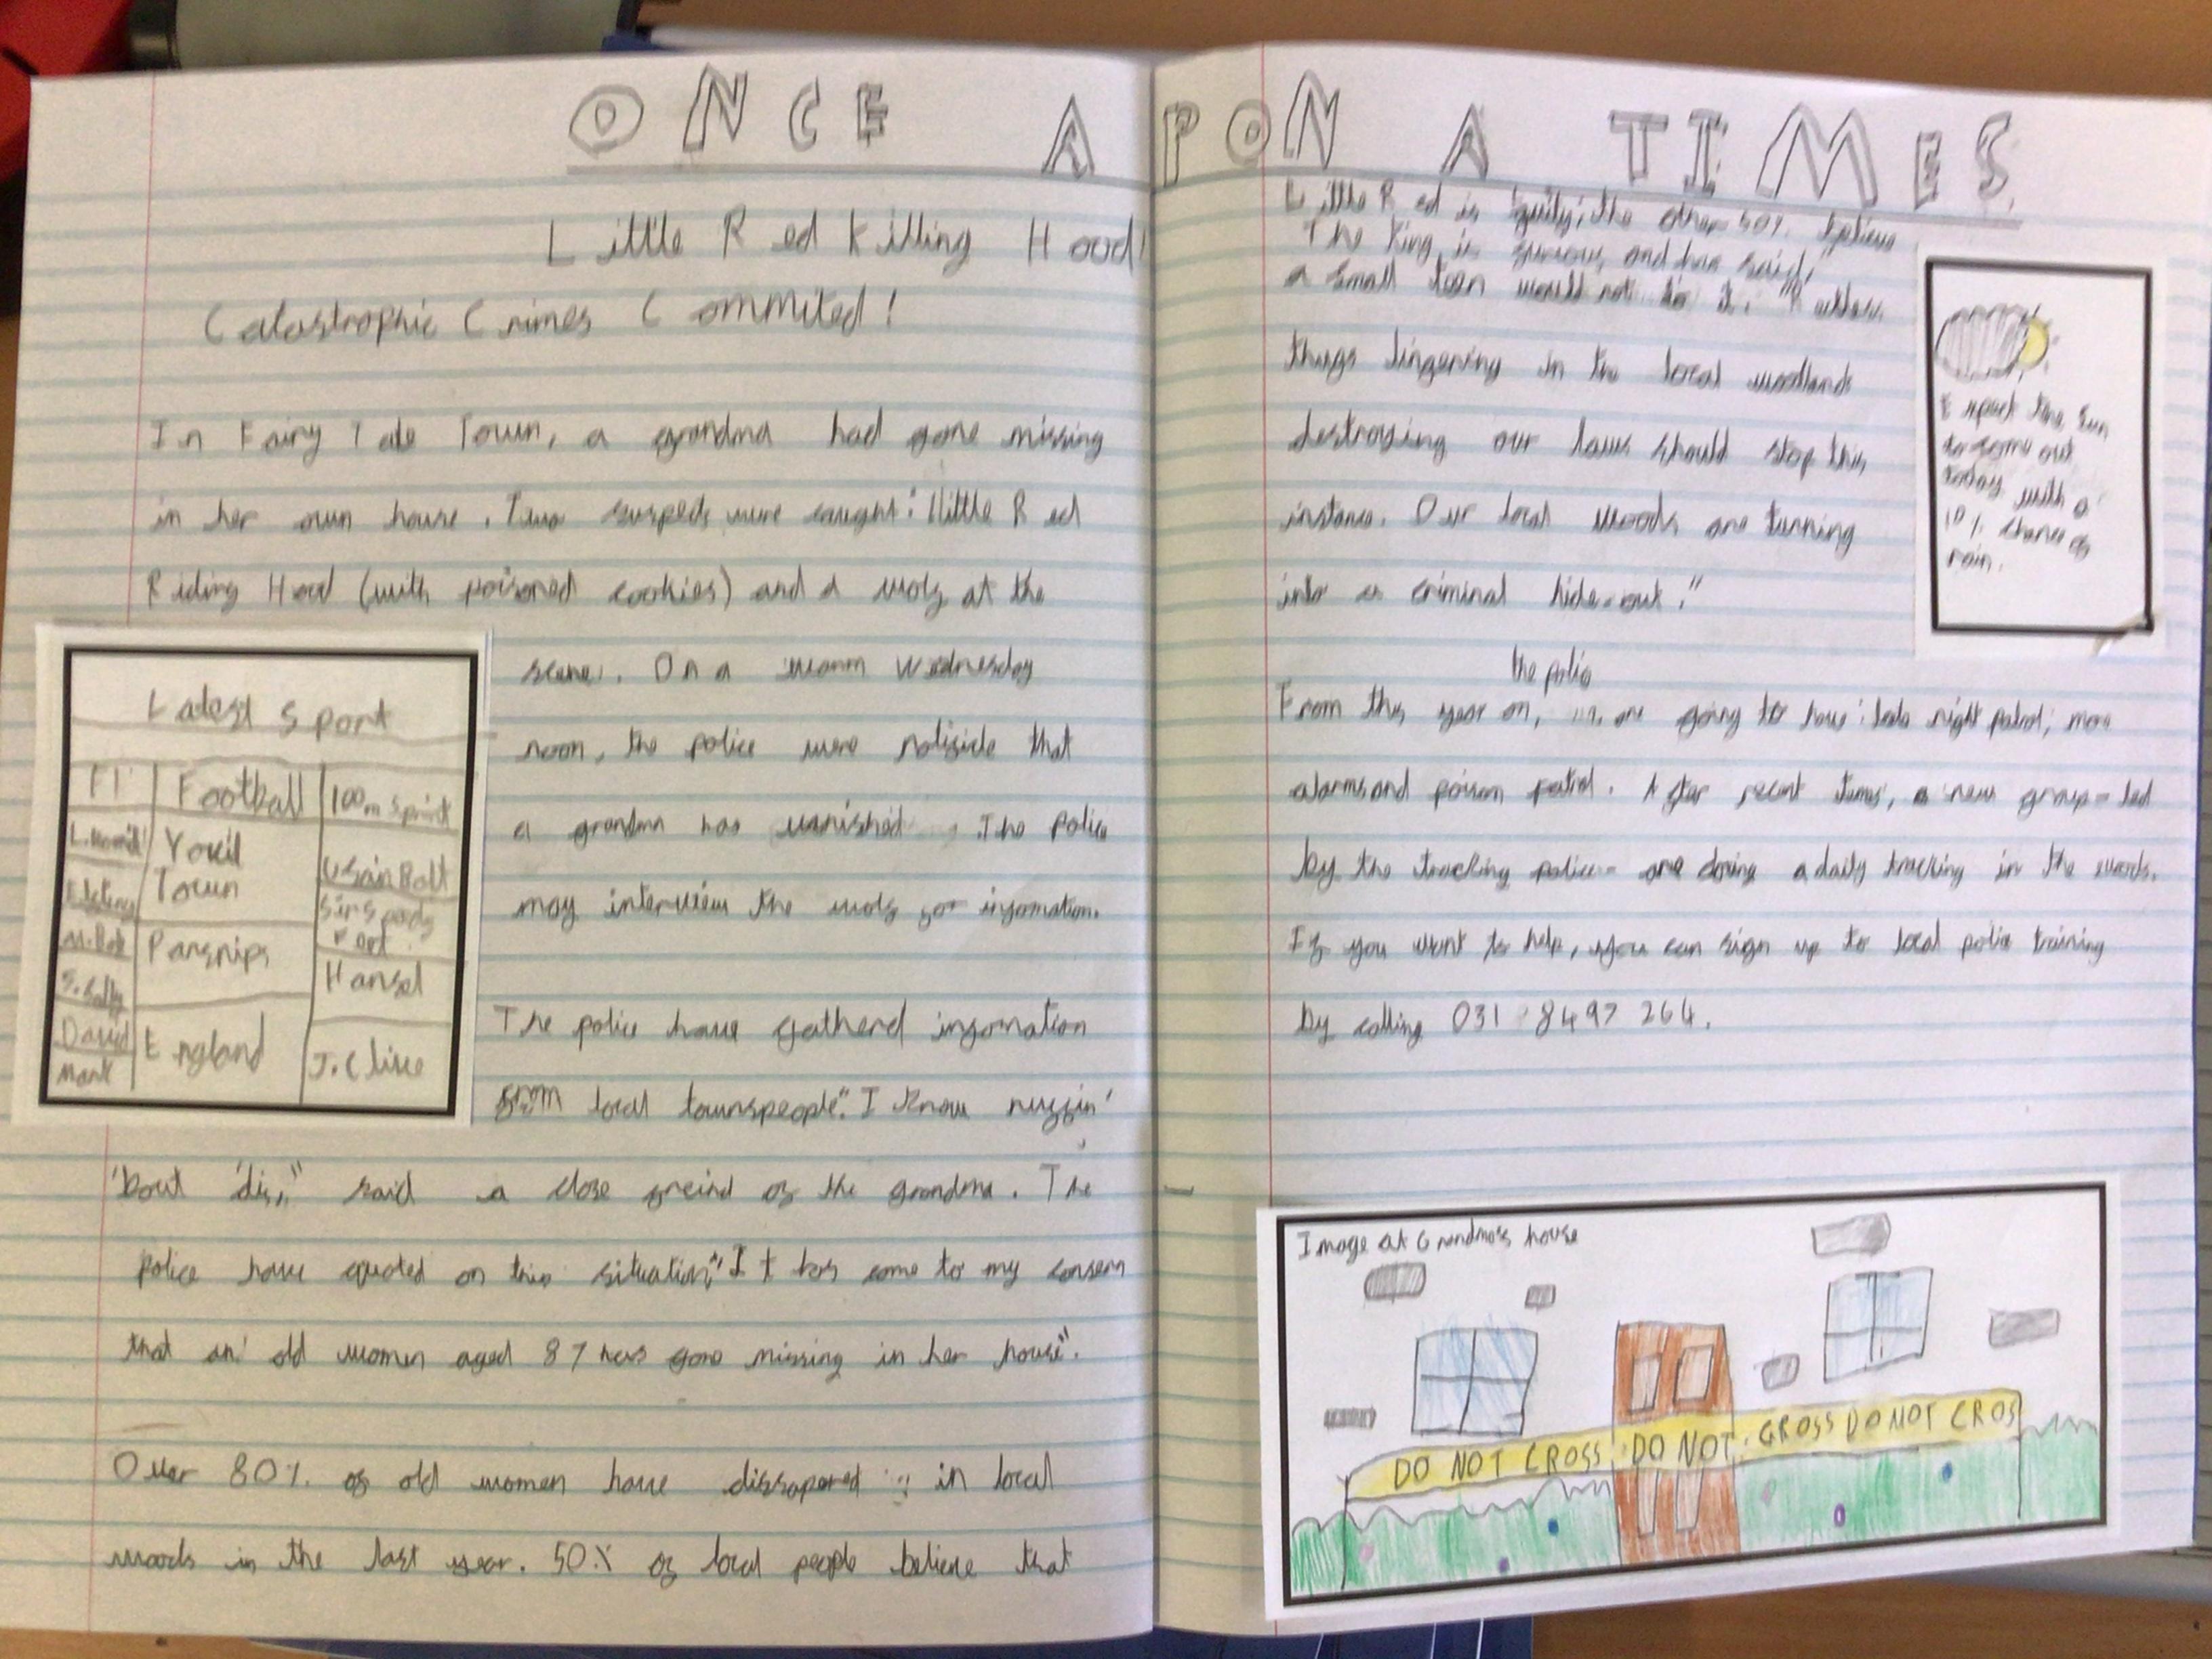 ONCE APON A TIMES
Little Red Killing Hood!
Catastrophic Crimes Commited!
In Fairy Tale Town, a grandma had gone missing
in her own house. Two suspects were caught: little Red
Riding Hood (with poisoned cookies) and a wolf at the
scene. On a warm Wednesday
noon, the police were notiside that
a grandma has vanished. The police
may interview the wolf for infomation.
The police have gatherd infomation
from local townspeople." I know nuffin'
'bout 'dis," said a close freind of the grandma. The
police have quoted on this situation," It has come to my consern
that an old women aged 87 has gone missing in her house".
Over 80% of old women have dissapered in local
woods in the last year. 50% of local people believe that
Latest Sport
F1 Football 100m Sprint
Yovil
Town
Usain Bolt
Parsnips
Hansel
David
Mark
England
J.Clive
Little Red is guilty; the other 50% believe
The King is furious and has said,
a small teen would not do it. "
thugs lingering in the local woodlands
destroying our laws should stop this
instance. Our local woods are turning
into a criminal hide-out."
the police
From this year on, are going to have: night patrol, more
alarms and poison patrol. After recent items, a new group - led
by the tracking police - are doing a daily tracking in the woods.
If you want to help, you can sign up to local police training
by calling 031 8497 264.
Expect the sun
to come out
today with a
10% chance of
rain.
Image at Grandma's house
DO NOT CROSS DO NOT CROSS DO NOT CROS